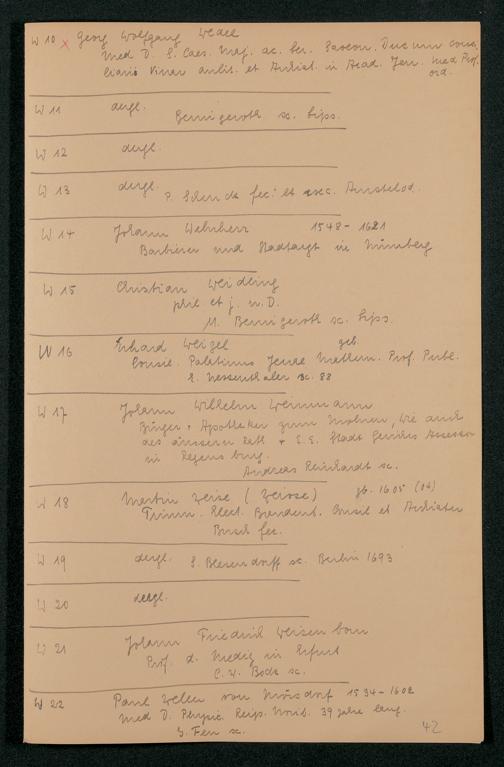 W 10 x Georg Wolfgang Wedel
Med D. S. Caes. Maj. ac. Ser. Saxon. Ducum cons
liario Vimar archit. et Archiat. in Acad. Jen. Med Prof.
ord.
W 11 dergl.
Bernigeroth sc. Lips.
W 12 dergl.
W 13 dergl.
P. Schenck fec: et exc. Amstelod.
W 14 Johann Wehnherr 1548 - 1621
Barbierer und Stadtarzt in Nürnberg
W 15 Christian Weidling
phil et j. u. D.
M. Bernigeroth sc. Lips.
W 16 Erhard Weigel geb.
Consil. Palatinus Jenae Mathem. Prof. Publ.
E. Nessenthaler sc. 88
W 17 Johann Wilhelm Weinmann
Bürger + Apotheker zum Mohren, wie auch
des äusseren Rath + E. E. Stadt Gerichts Assessor
in Regensburg.
Andreas Reinhardt sc.
W 18 Martin Weise (Weisse) gb. 1605 (04)
Elect. Brandenb. Consil et Archiater
Busch fec.
W 19 dergl. S. Blesendorff sc. Berlin 1693
W 20 dergl.
W 21 Johann Friedrich Weisenborn
Prof. d. Mediz in Erfurt
C. W. Bock sc.
W 22 Paul Weller von Molsdorf 1534 - 1602
Med D. Physic. Reip. Norib. 39 Jahre lang.
G. Fen sc.
42